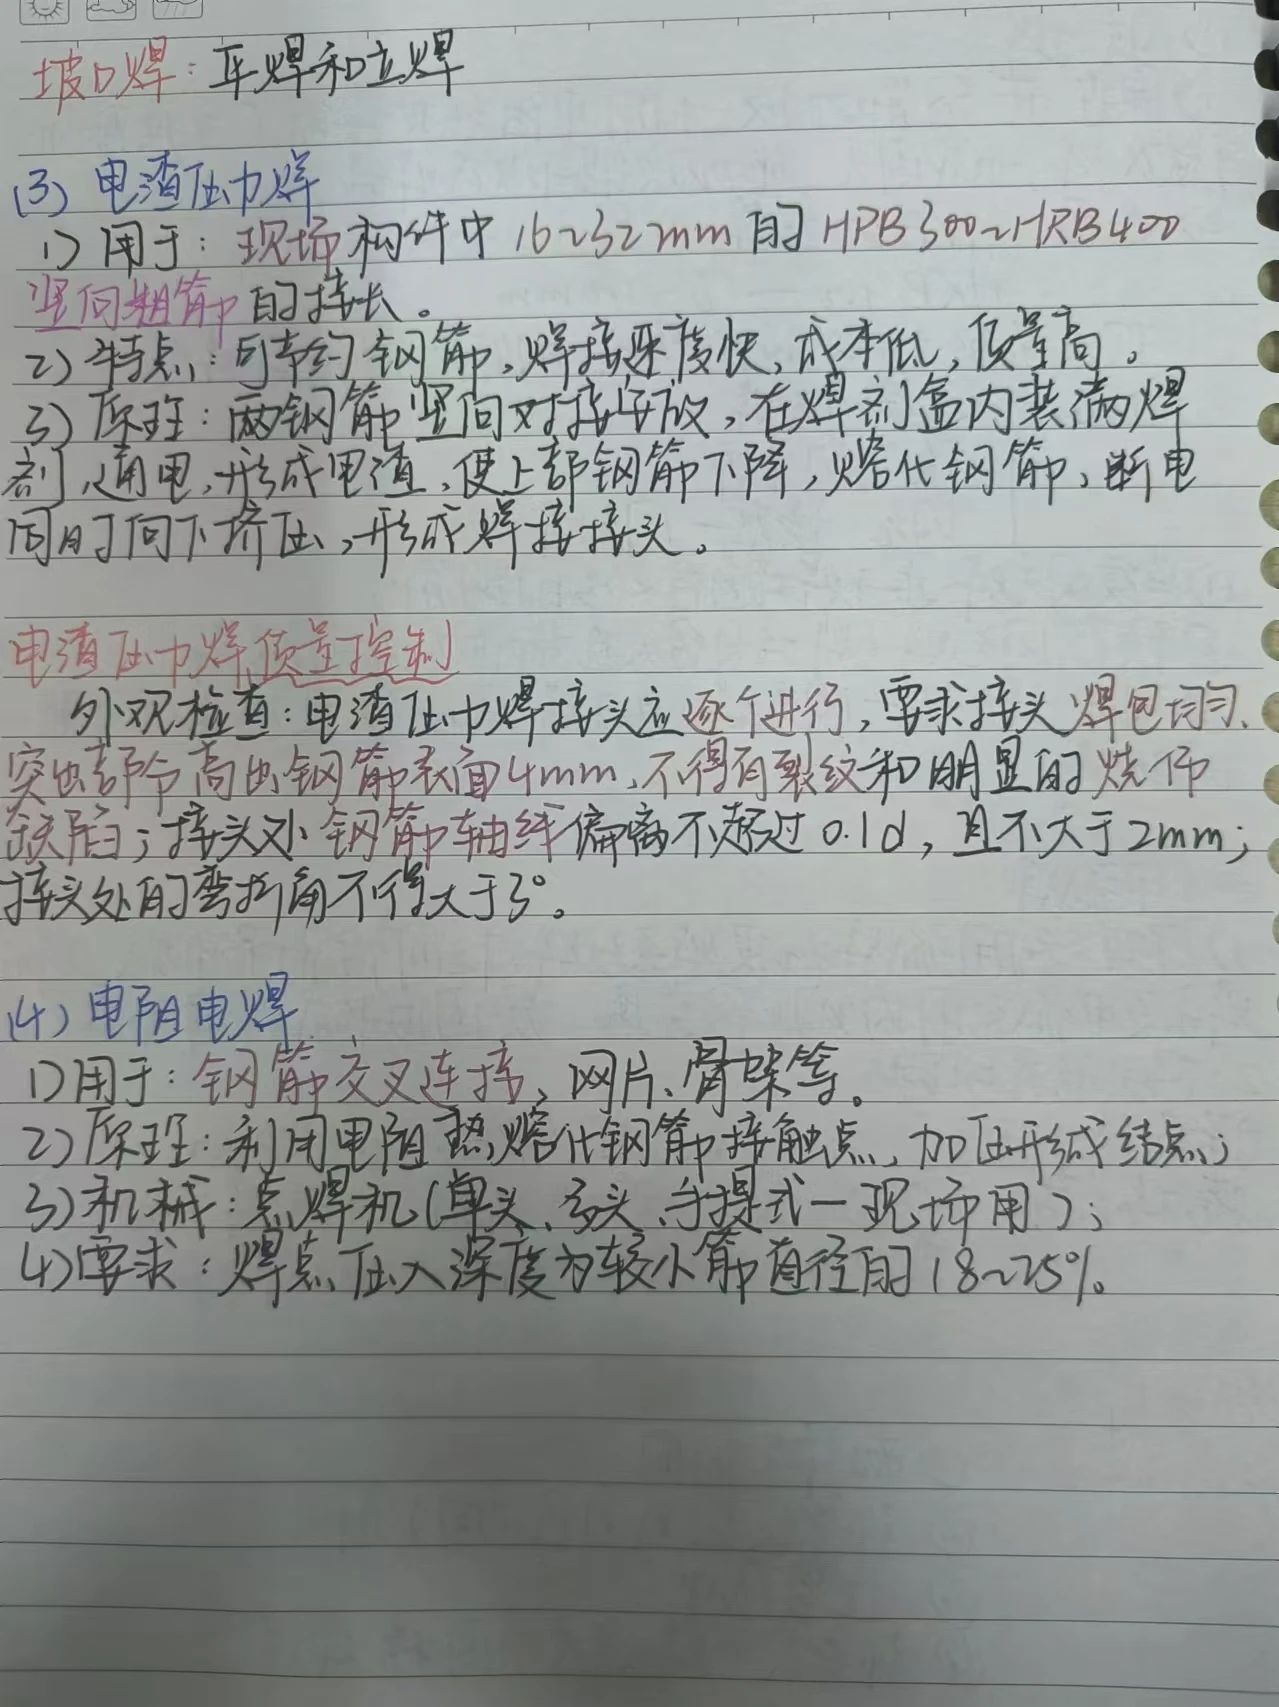 坡口焊：平焊和立焊
(3) 电渣压力焊
1) 用于：现场构件中 16~32mm 的 HPB300~HRB400
竖向粗筋的接长。
2) 特点：可节约钢筋，焊接速度快，成本低，质量高。
3) 原理：两钢筋竖向对接安放，在焊剂盒内装满焊
剂，通电，形成电渣，使上部钢筋下降，熔化钢筋，断电
同时向下挤压，形成焊接接头。
电渣压力焊质量控制
外观检查：电渣压力焊接头应逐个进行，要求接头焊包均匀、
突出部分高出钢筋表面4mm，不得有裂纹和明显的烧伤
缺陷；接头处钢筋轴线偏离不超过0.1d，且不大于2mm；
接头处的弯折角不得大于3°。
(4) 电阻电焊
1) 用于：钢筋交叉连接、网片、骨架等。
2) 原理：利用电阻热熔化钢筋接触点，加压形成结点；
3) 机械：点焊机（单头、多头、手提式—现场用）；
4) 要求：焊点压入深度为较小筋直径的18~25%。